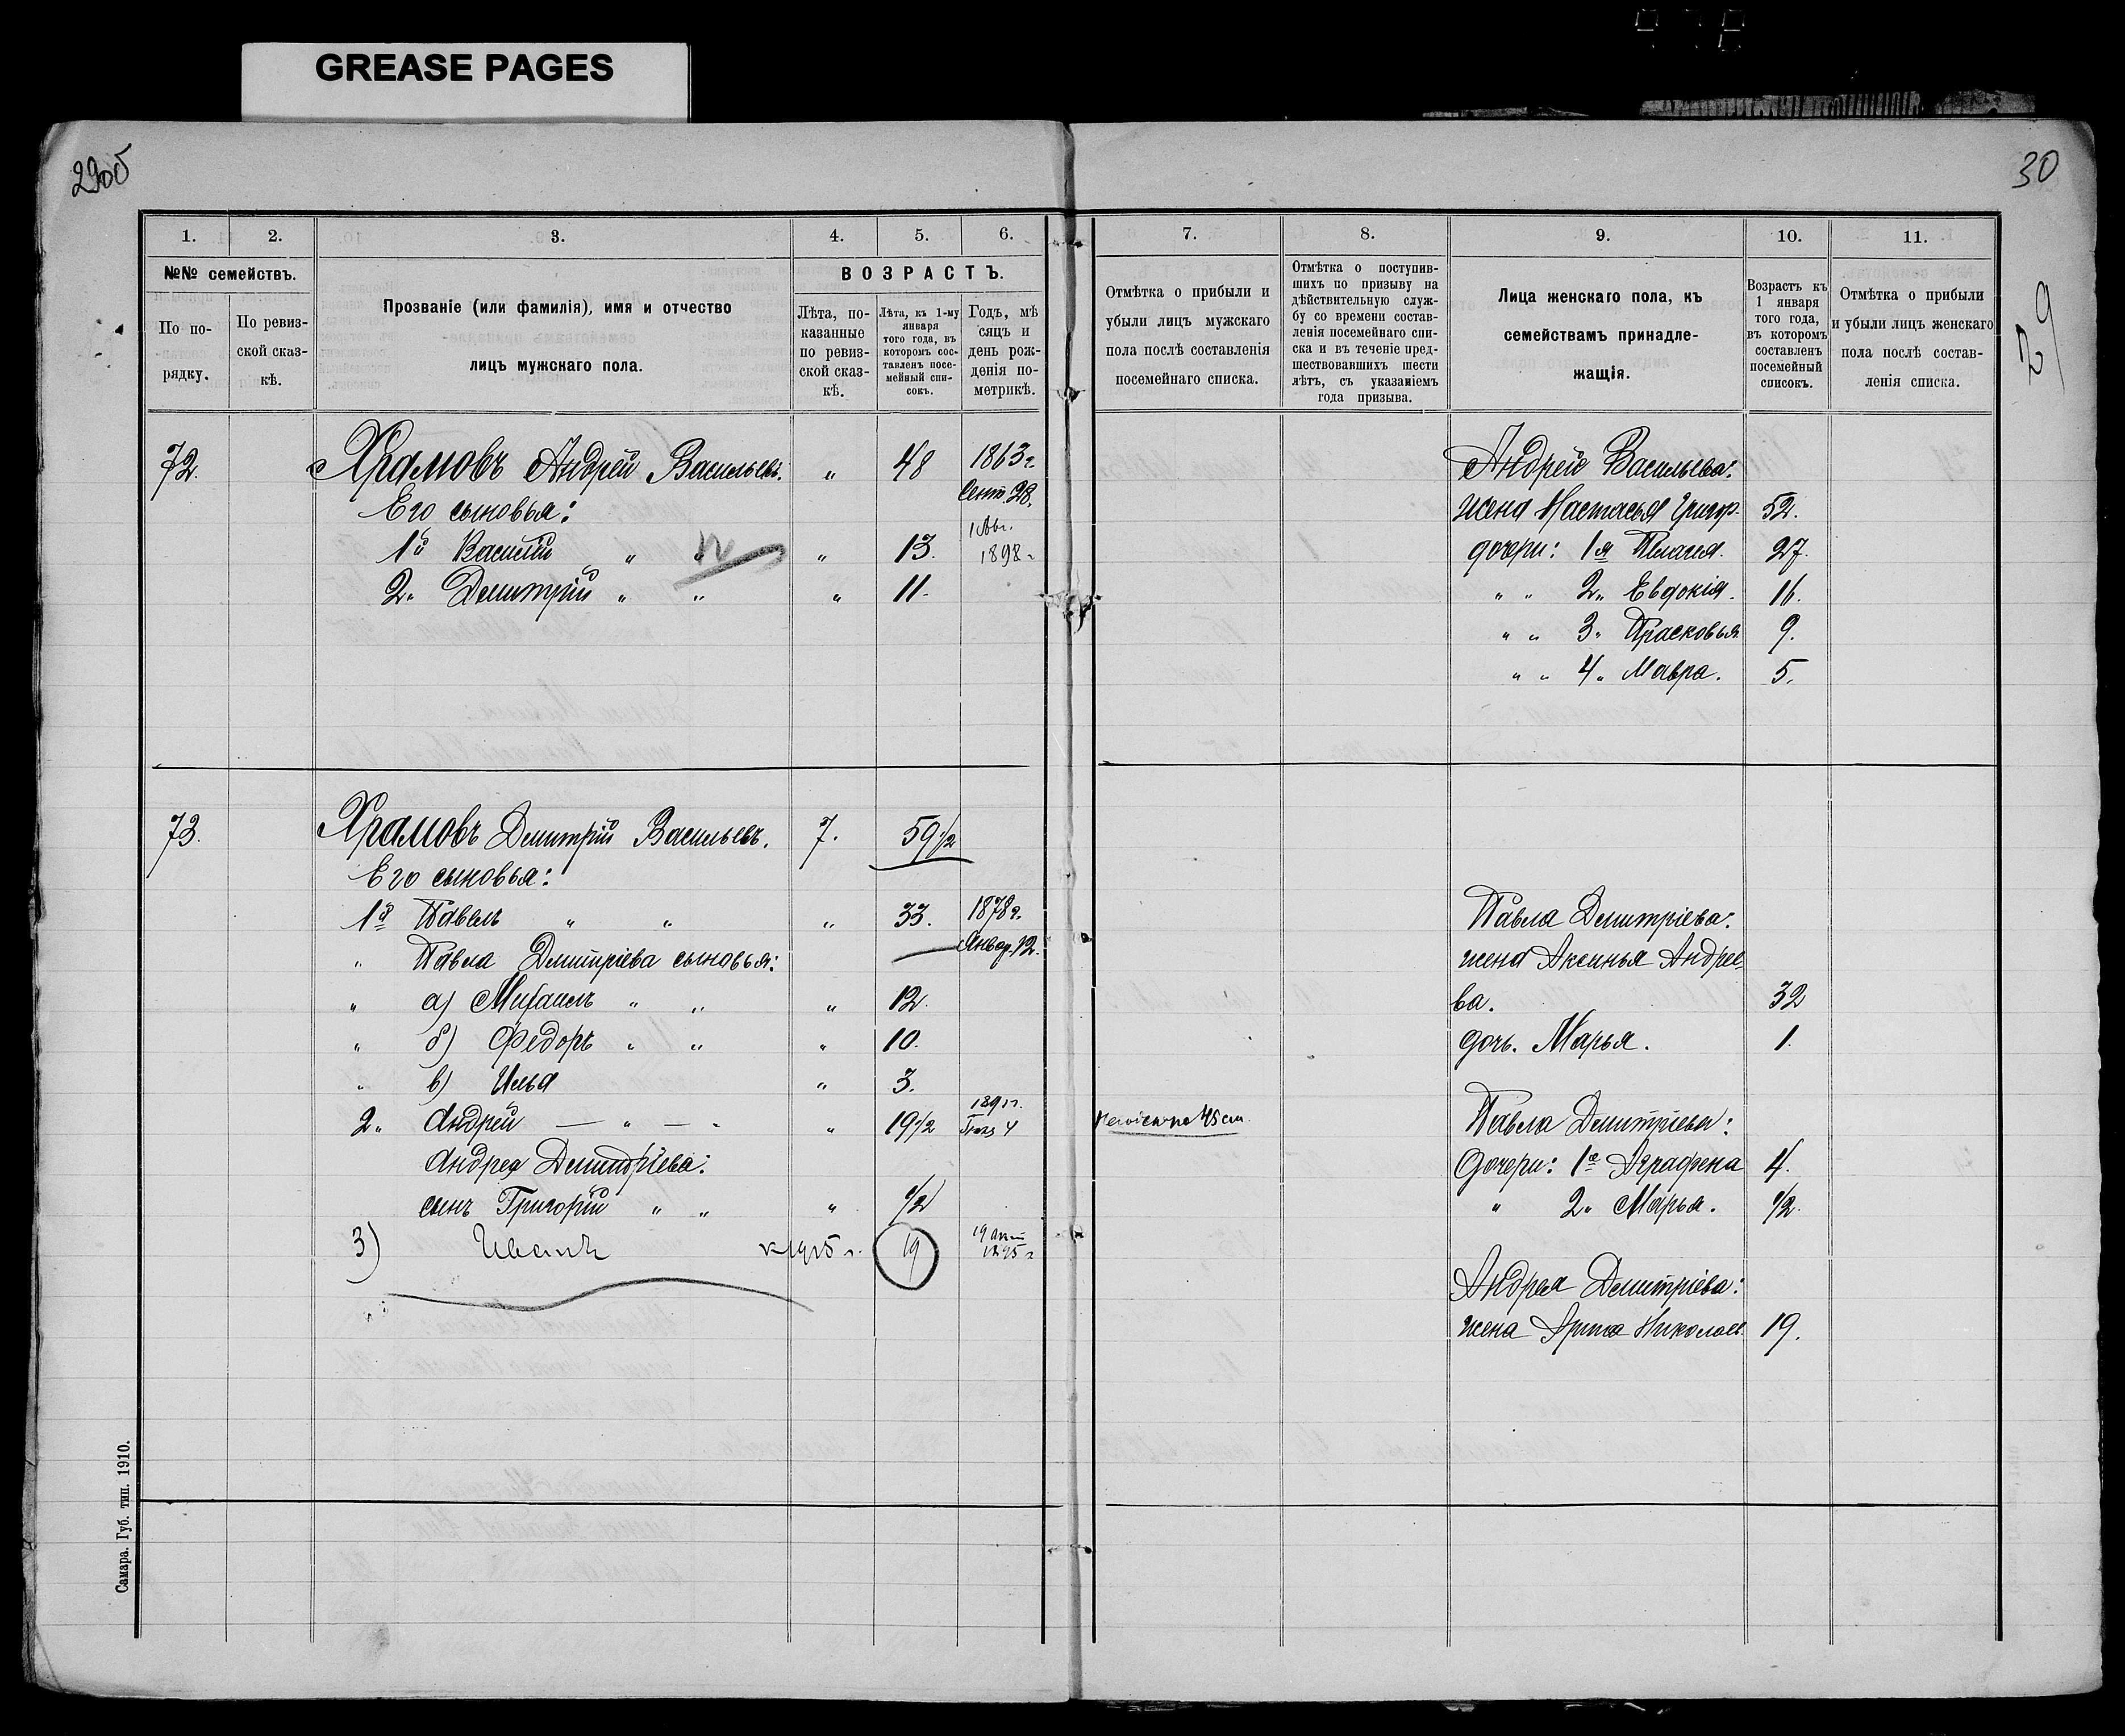 GREASE PAGES
29об
30
29
1. 2. 3. 4. 5. 6.
№№ семействъ.
По порядку.
По ревизской сказкѣ.
Прозваніе (или фамилія), имя и отчество
лицъ мужскаго пола.
ВОЗРАСТЪ.
Лѣта, показанные по ревизской сказкѣ.
Лѣта, къ 1-му января того года, въ которомъ составленъ посемейный списокъ.
Годъ, мѣсяцъ и день рожденія по метрикѣ.
72. Храмовъ Андрей Васильевъ. „ 48 1863 г. Сент. 28.
Его сыновья:
1й Василій „ „ „ 13. 1 Авг. 1898 г.
2„ Дмитрій „ „ „ 11.
73. Храмовъ Дмитрій Васильевъ. 7. 59 1/2
Его сыновья:
1й Павелъ „ „ „ 33. 1878 г. Январ. 12.
„ Павла Дмитріева сыновья:
„ а) Михаилъ „ „ „ 12.
„ б) Федоръ „ „ „ 10.
„ в) Илья „ 3.
2„ Андрей — „ — „ „ 19 1/2 1891 г. 4
Андрея Дмитріева:
сынъ Григорій „ „ „ 1/2
3) Иванъ к 1915 г. 19 19 1895 г.
Самара. Губ. тип. 1910.
7. 8. 9. 10. 11.
Отмѣтка о прибыли и
убыли лицъ мужскаго
пола послѣ составленія
посемейнаго списка.
Отмѣтка о поступив-
шихъ по призыву на
дѣйствительную служ-
бу со времени состав-
ленія посемейнаго спи-
ска и въ теченіе пред-
шествовавшихъ шести
лѣтъ, съ указаніемъ
года призыва.
Лица женскаго пола, къ
семействамъ принадле-
жащія.
Возрастъ къ
1 января
того года,
въ которомъ
составленъ
посемейный
списокъ.
Отмѣтка о прибыли
и убыли лицъ женскаго
пола послѣ состав-
ленія списка.
Андрей Васильева:
жена Настасья Григор. 52.
дочери: 1я Пелагея. 27.
„ „ 2„ Евдокія. 16.
„ „ 3„ Прасковья 9.
„ „ 4„ Мавра. 5.
Павла Дмитріева:
жена Аксинья Андрее-
ва. 32
дочь. Марья. 1.
Павла Дмитріева:
Дочери: 1я Аграфена 4.
„ 2„ Марья. 1/2.
Андрея Дмитріева:
жена Арина Николаев. 19.